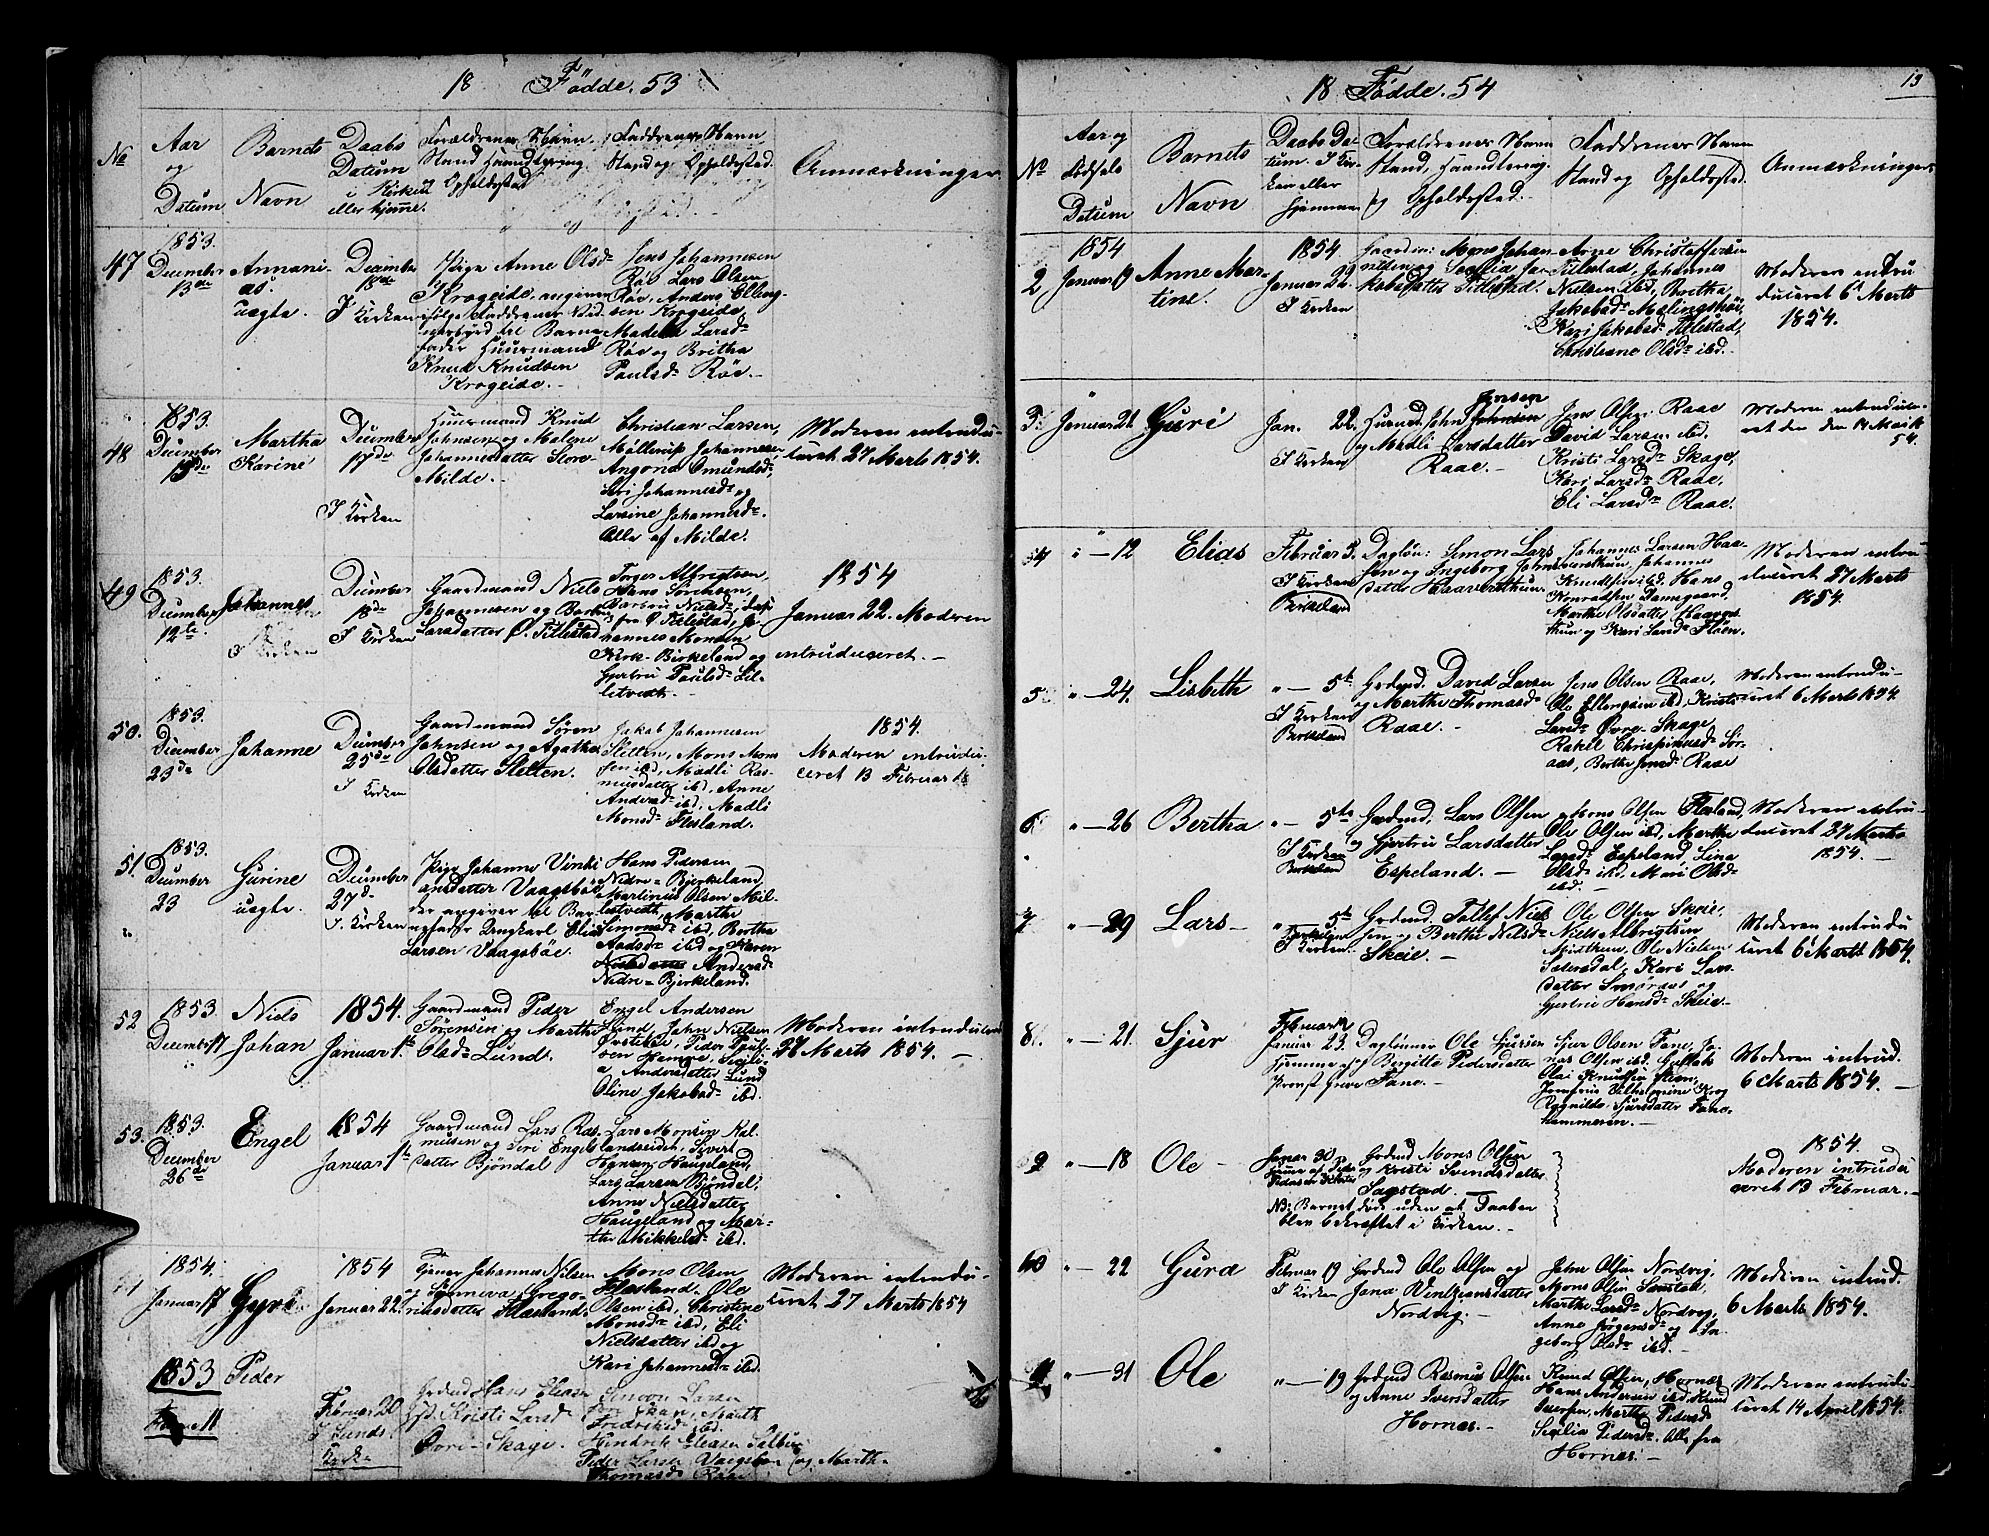 18 Födde. 53
No
Aar
og
Datum
Barnets
Navn
Daabs
Datum
i Kirken
eller hjeme.
Forældrenes Navn
Stand Haandtering
og Opholdsted
Faddrenes Navn
Stand og Opholdssted.
Anmærkninger
47
1853.
December
13de
Annani-
as.
uægte.
December
18de
I Kirken
Pige Anne Olsdr
Krogeide, angiver
ifølge Faddrenes Vid-
nesbyrd til Barne-
fader Huusmand
Knud Knudsen
Krogeide. –
Jens Johannesen
Röe Lars Olsen
Röe, Anders Elling-
sen Krogeide,
Madele Larsdr
Röe og Britha
Paulsdr Röe. –
48
1853.
December
13de
Martha
Karine
December
17de
I Kirken
Huusmand Knud
Johnsen og Malene
Johannesdatter Store-
Milde. –
Christian Larsen,
Johannesen
Omundsdr,
Siri Johannesdr og
Larsine Johannesdr.
Alle af Milde.
Moderen introdu-
ceret 27 Marts 1854.
49
1853.
December
12te
Johannes
December
18de
I Kirken
Gaardmand Niels
Johannesen og
Larsdatter Ø. Tillestad
Torger Albrigtsen,
Hans Sörensen,
Nielsdr,
fra Ø Tillestad, Jo-
hannes Monsen
Kirk-Birkeland og
Gjertru Paulsdr Lil-
letvedt. –
1854
Januar 22. Moderen
introduceret. –
50.
1853.
December
23de
Johanne
December
25de
I Kirken
Gaardmand Sören
Johnsen og Agathe
Olsdatter Sletten.
Jakob Johannesen
Sletten, Mons Mon-
sen ibd, Madli Ras-
musdatter ibd, Anne
Andersdr ibd, Madli
Monsdr Flesland.
1854.
Moderen introdu-
ceret 13 Februar
51.
1853.
December
23
Gurine
uægte.
December
27d.
I. Kirken
Pige Johanne
Vaagsböe
der angiver til Bar-
nefader Ungkarl Elias
Larsen Vaagsböe.
Hans Pedersen
Nedre-Bjerkeland
Martinus Olsen Mil-
lestvedt, Marthe
Simonsdr ibd, Bertha
ibd og Karen
Nielsdatter Andersdr
Nedre-Bjerkeland.
52
1853.
December 17
Niels
Johan
1854.
Januar 1ste
Gaardmand Peder
Sörensen og Marthe
Olsdr Lund.
Engel Andersen
Lund, John Nielsen
Peder
a Andersdatter Lund
Oline Jakobsdr ibd.
Moderen introduceret
27 Marts 1854. –
53.
1853.
December
26de
Engel
1854
Januar 1te
Gaardmand Lars Ras-
musen og Siri Engels-
datter Bjöndal
Lars Monsen Kal-
landseidet, Sivert
Hansen Haugeland,
Lars Larsen Bjöndal,
Anne Nielsdatter
Haugeland og Mar-
the Mikkelsdr ibd.
1854.
Januar 17
1854
Januar 22
Tjener Johannes Nielsen
og Synneva Grego-
riusdatter Flesland.
Mons Olsen
Flesland, Ole
Olsen ibd, Christine
Monsdr ibd, Eli
Nielsdatter ibd og
Kari Johannesdr ibd.
Moderen introdu-
ceret 27 Marts 1854
1853
11
Peder
Februar 20
Kirke
Grdmd Hans Eliasen
og Kristi Larsdr
Övre-Skage.
Larsen
Marth
ibd.
Hendrik Eliasen
Peder Larsen Vaagsböe og Marthe
Thomasdr Raae
18 Födde. 54
19
No
Aar og
Födsels
Datum
Barnets
Navn
Daabs Da-
tum. I Kir-
ken eller
hjemme
Forældrenes Navn
Stand, Haandtering
og Opholdssted. –
Faddrenes Navn
Stand og Opholdssted.
Anmærkninger
2
1854
Januar 19
Anne Mar-
tine.
1854
Januar 22.
I Kirken
Gaardm: Mons Johan-
nesen og Secilia Ja-
kobsdatter Tillestad.
Arne Christoffersen
Tillestad, Johannes
Nielsen ibd, Bretha
Jakobsdr
Kari Jakobsdr Tillestad,
Christiane Olsdr ibd. –
Moderen introdu-
duceret 6 Marts
1854.
3.
Januar 21.
Guri
Jan. 22.
I Kirken
Jensen
Huusmd. John Johnsen
og Madli Larsdatter
Raae. –
Jens Olsen Raae
David Larsen ibd.
Kristi Larsdr Skage,
Kari Larsdr Raae,
Eli Larsdr Raae.
Moderen introduce-
54.
4
" – 12
Elias
Februar 5.
I Kirken
Birkeland
Daglön: Simon Lars-
sen og Ingeborg Johns-
datter Haavardsthuun
Johannes Larsen Haa-
vardsthun, Johannes
Knudsen ibd. Hans
Konradsen Dannegaard,
Marthe Olsdatter Haavars-
thun og Kari Larsdr Flöen.
Moderen introdu-
duceret 27 Marts
1854.
5
" – 24.
Lisbeth
" – 5te
I Kirken
Birkeland
Grdmd. David Larsen
og Marthe Thomasdr
Raae. –
Jens Olsen Raae,
Ole Ellingsen ibd, Kristi
Larsdr Övre-Skage,
Rakel Chrispinusdr Sör-
aas, Berthe Jensdr Raae
Moderen introdu-
ceret 6 Marts 1854.
6
" – 26
Bertha
" – 5te
I Kirken
Birkeland
Grdmd. Lars Olsen
og Gjertru Larsdatter
Espeland. –
Mons Olsen Flæland,
Ole Olsen ibd, Marthe
Larsdr Espeland, Lina
Olsdr ibd, Mari Olsdr
ibd. –
Moderen introdu-
duceret 27 Marts
1854. –
7
" – 29
Lars –
" – 5te
Birkeland
I Kirken
Grdmd. Tollef Niel-
sen og Berthe Nielsdr
Skeie. –
Ole Olsen Skeie,
Niels Albrigtsen
Midthun, Ole Nielsen
Sætersdal, Kari Lars-
datter Smöraas og
Gjertru Hansdr Skeie. –
Moderen introdu
ceret 6 Marts 1854.
8.
" – 21.
Sjur
Februar
Januar 23.
hjemme af
Provst Greve
Daglönner Ole Sjursen
og Bergitte Pedersdatter
Fane. –
Sjur Olsen Fane, Jo-
nas Olsen ibd. Gullak
Olai Knudsen Steen,
og
Ragnilde Sjursdatter Fane-
hammeren. –
Moderen introd.
6 Marts 1854. –
9
" – 18
Ole –
Januar 30
hjemme af Peder
Pedersen
Grdmd Mons Olsen
og Kristi Svendsdatter
Sagstad. –
NB: Barnet döde uden at Daaben
blev bekræftet i Kirken. –
1854.
Moderen introdu
ceret 13 Februar. –
10
" – 22
Gurd
Februar 19
I Kirken
Grdmd Ole Olsen og
Jana Vinkensdatter
Nordvig. –
John Olsen Nordvig,
Mons Olsen Sanstad,
Marthe Larsdr Nordvig,
Anne Jörgensdr og In-
geborg Olsdr ibd. –
Moderen introd.
6 Marts 1854.
11
" – 31
Ole
" – 19
Grdmd Rasmus Olsen
og Anne Iversdatter
Hornes. –
Knud Olsen, Hornes
Hans Andersen ibd Knud
Iversen, Marthe Pedersdr
Sicilia Pedersdr. Alle fra
Hornes. –
Moderen introdu
ceret 14 April 1854.